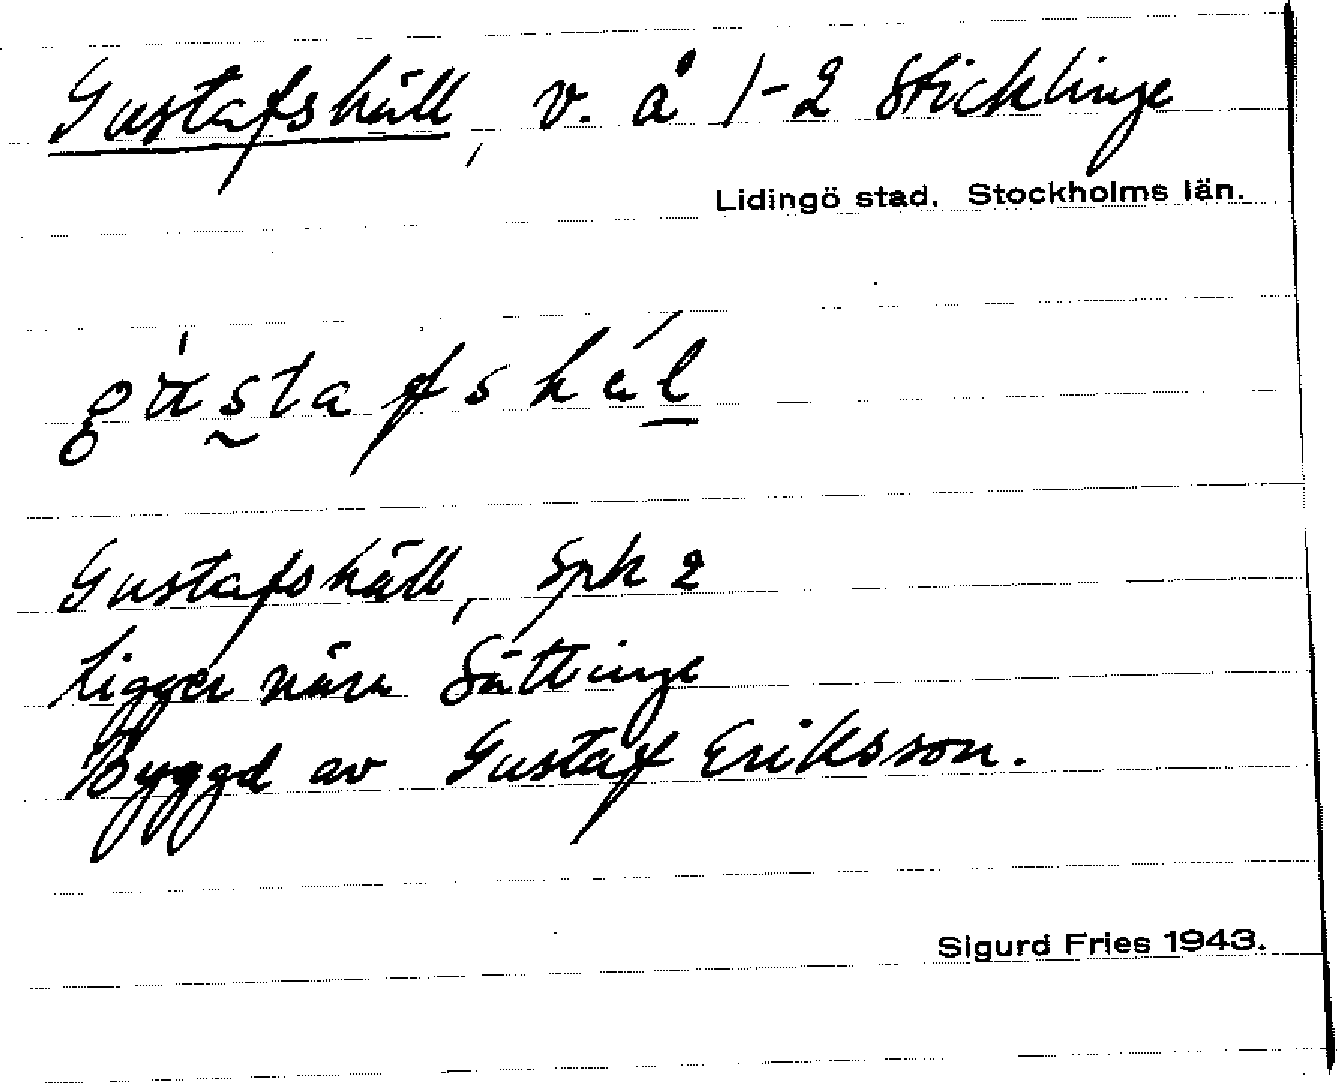 Gustafshäll, v. å 1-2 Sticklinge
Lidingö stad. Stockholms län.
gustafshäl
Gustafshäll, Spk 2
Ligger nära Sättinge
Byggd av Gustaf Eriksson.
Sigurd Fries 1943.